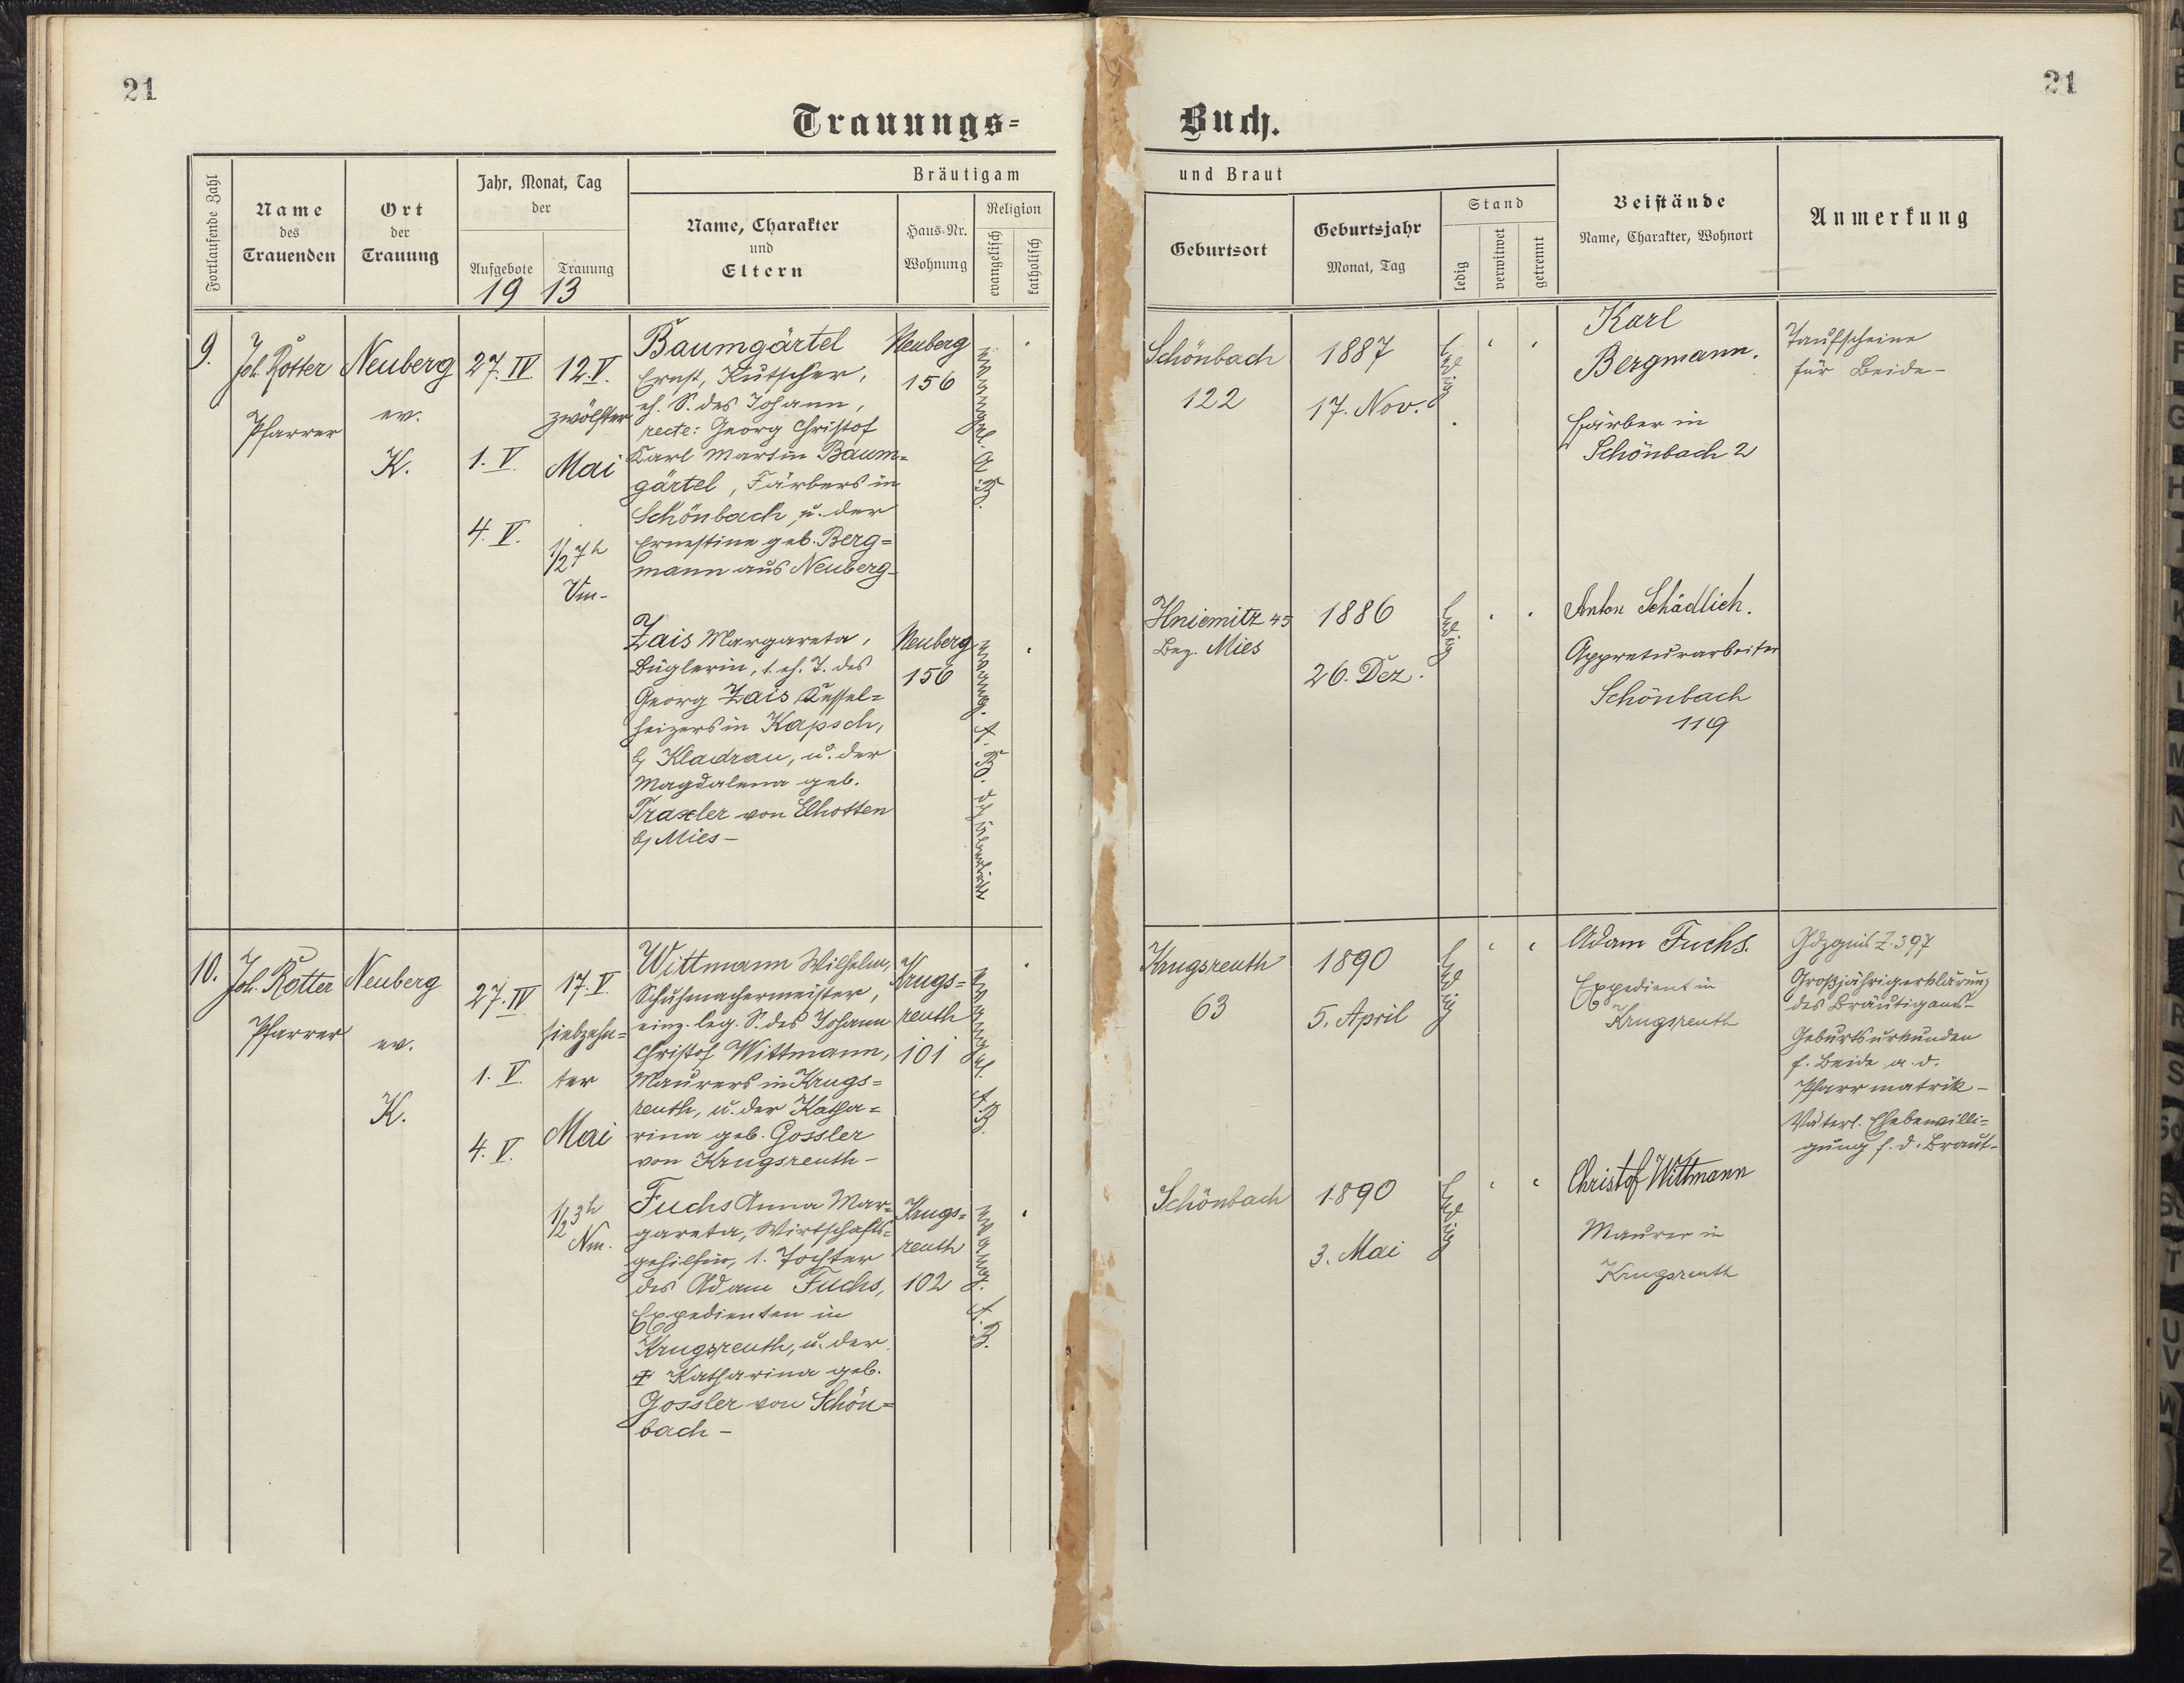 21
21
Trauungs=
Buch.
Fortlaufende Zahl
Name
des
Trauenden
Ort
der
Trauung
Jahr, Monat, Tag
der
Aufgebote
Trauung
19 13
Bräutigam
und Braut
Name, Charakter
und
Eltern
Haus-Nr.
Wohnung
Religion
evangelisch
katholisch
Geburtsort
Geburtsjahr
Monat, Tag
Stand
ledig
verwitwet
getrennt
Beistände
Name, Charakter, Wohnort
Anmerkung
9.
Joh. Rotter
Pfarrer
Neuberg
ev.
K.
27. IV
1. V.
4. V.
12. V.
zwölfter
Mai
1/2 7h
Vm-
Baumgärtel
Ernst, Kutscher,
eh. S. des Johann,
recte: Georg Christof
Karl Martin Baum=
gärtel, Färbers in
Schönbach, u. der
Ernestine geb. Berg=
mann aus Neuberg-
Neuberg
156
evangel. A. B.
Schönbach
122
1887
17. Nov.
ledig
Karl
Bergmann.
Färber in
Schönbach 2
Taufscheine
für Beide-
Zais Margareta,
Büglerin, 1. eh. T. des
Georg Zais, Kessel=
heizers in Kapsch,
b/ Kladrau, u. der
Magdalena geb.
Traxler von Elhotten
b/ Mies-
Neuberg
156
evang. A. B. dch Übertritt
Hniemitz 45
Bez. Mies
1886
26. Dez.
ledig
Anton Schädlich.
Appreturarbeiter
Schönbach
119
10.
Joh. Rotter
Pfarrer
Neuberg
ev.
K.
27. IV
1. V.
4. V.
17. V.
siebzehn=
ter
Mai
1/2 3h
Nm.
Wittmann Wilhelm,
Schuhmachermeister,
einz. leg. S. des Johann
Christof Wittmann,
Maurers in Krugs=
reuth, u. der Katha=
rina geb. Gossler
von Krugsreuth-
Krugs=
reuth
101
evangel. A. B.
Krugsreuth
63
1890
5. April
ledig
Adam Fuchs.
Expedient in
Krugsreuth
Z. 397
Großjährigerklärung
des Bräutigams-
Geburtsurkunden
f. Beide a. d.
Pfarrmatrik-
Väterl. Ehebewilli=
gung f. d. Braut-
Fuchs Anna Mar=
gareta, Wirtschafts=
gehilfin, 1. Tochter
des Adam Fuchs,
Expedienten in
Krugsreuth, u. der
‡ Katharina geb.
Gossler von Schön=
bach-
Krugs=
reuth
102
evang. A. B.
Schönbach
1890
3. Mai
ledig
Christof Wittmann
Maurer in
Krugsreuth